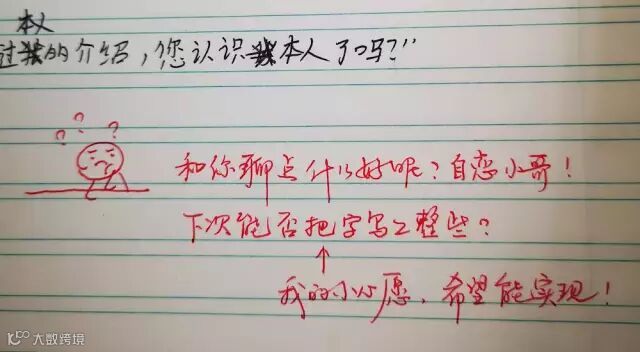 本人
过的介绍，您认识本人了吗？”
? ? ?
和你聊点什么好呢？自恋小哥！
下次能否把字写工整些？
↑
我的小心愿，希望能实现！
10℃ 大数跨境